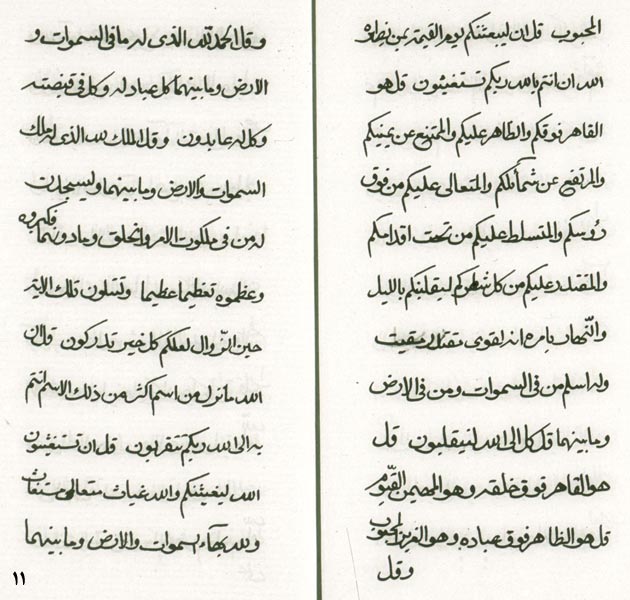 المحبوب قل ان ليبعثنكم يوم القيمة بمن نظهره
الله ان انتم بالله ربكم تستغيثون قل هو
القاهر فوقكم والظاهر عليكم والممتنع عن يمينكم
والمرتفع عن شمائلكم والمتعالى عليكم من فوق
رؤسكم والمتسلط عليكم من تحت اقدامكم
والمقتدر عليكم من كل شطركم ليقلبنكم بالليل
والنهار بامره انه لقوى مقتدر مقيت
وله اسلم من فى السموات ومن فى الارض
وما بينهما قل كل الى الله لينقلبون قل
هو القاهر فوق خلقه وهو المهيمن القيوم
قل هو الظاهر فوق عباده وهو العزيز المحبوب
وقل
و قل الحمد لله الذى له ما فى السموات و
الارض وما بينهما كل عباد له وكل فى قبضته
وكل له عابدون وقل الملك لله الذى له ملك
السموات والارض وما بينهما وليسجدن
له من فى ملكوت الامر والخلق وما دونهما فكبروه
وعظموه تعظيما عظيما وتتلون تلك الاية
حين الزوال لعلكم كل خير تدركون قل ان
الله ما نزل من اسم اكثر من ذلك الاسم انتم
به الى الله ربكم تتقربون قل ان تستغيثون
الله ليغيثنكم والله غياث متعالى مستغاث
ولله بهاء السموات والارض وما بينهما
١١